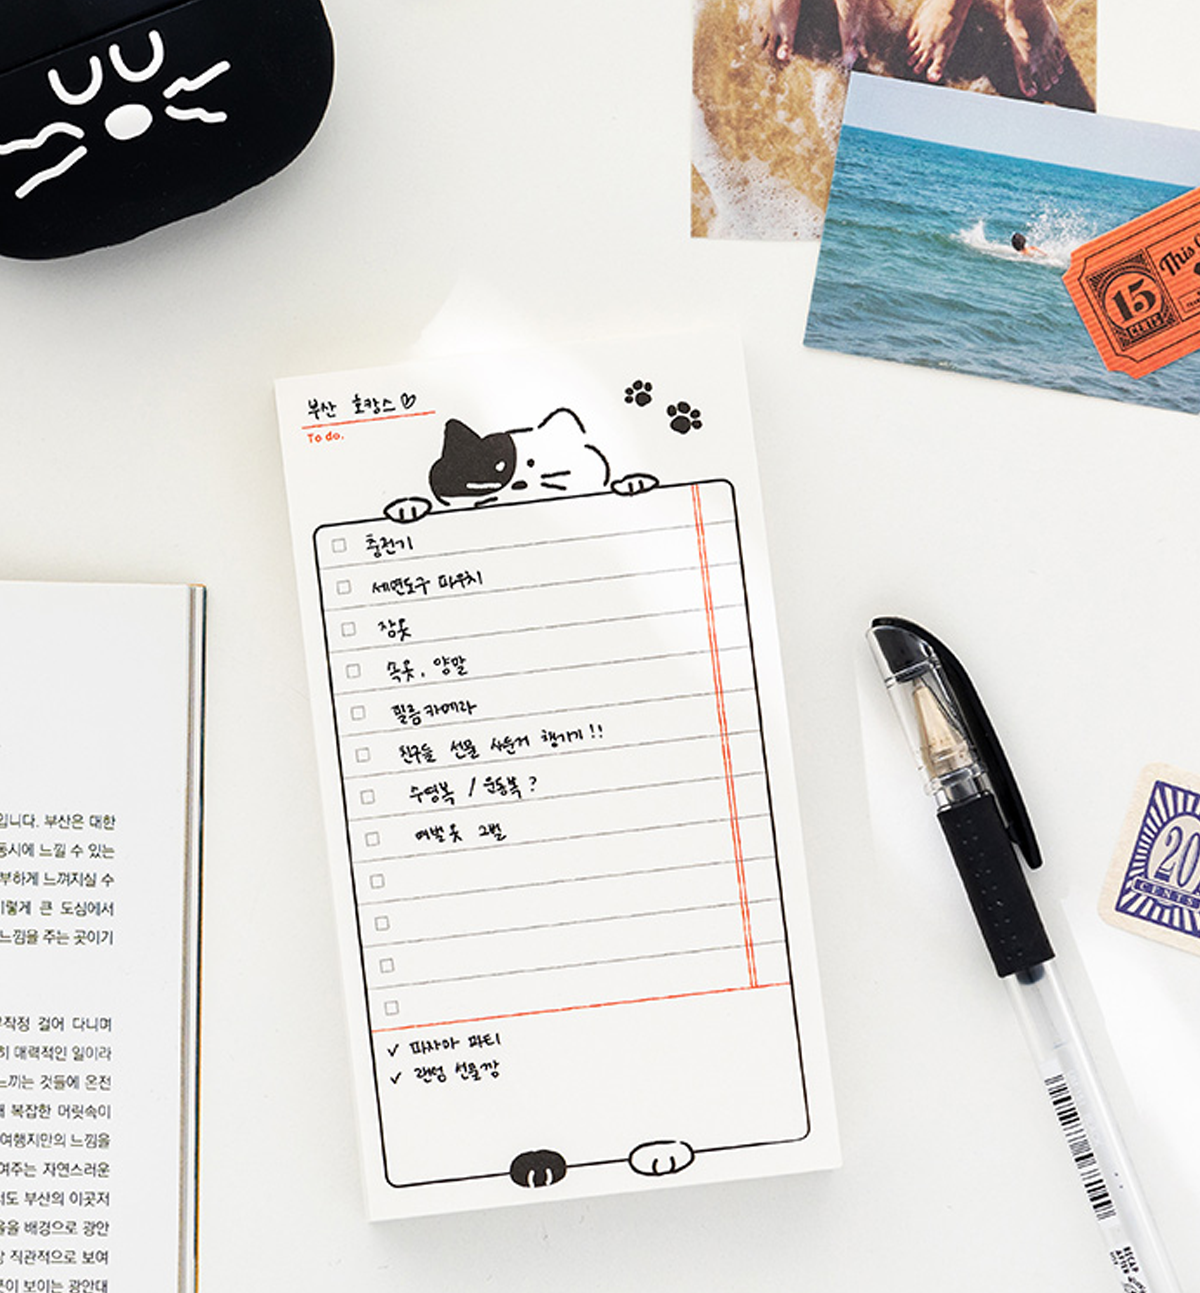 부산 호캉스♡
To do.
충전기
세면도구 파우치
잠옷
속옷, 양말
필름카메라
친구들 선물 사둔거 챙기기!!
수영복 / 운동복?
여벌옷 2벌
✓ 파자마 파티
✓ 랜덤 선물깡
입니다. 부산은 대한
동시에 느낄 수 있는
부하게 느껴지실 수
이렇게 큰 도심에서
느낌을 주는 곳이기
무작정 걸어 다니며
히 매력적인 일이라
느끼는 것들에 온전
복잡한 머릿속이
여행지만의 느낌을
여주는 자연스러운
서도 부산의 이곳저
을을 배경으로 광안
직관적으로 보여
이 보이는 광안대
This
15
CENTS
20
CENTS